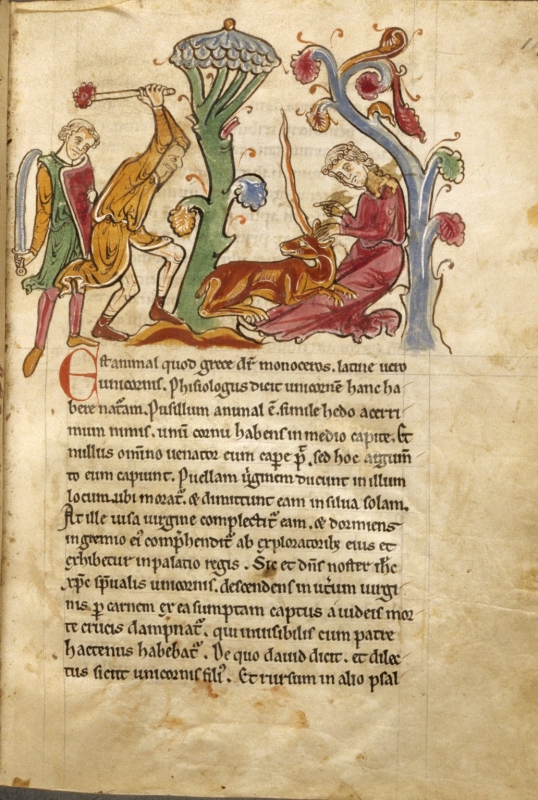 Est animal quod grece dr̃ monoceros. latine uero
unicornis. Phisiologus dicit unicornẽ hanc ha
bere nat̃am. Pusillum animal ẽ. simile hedo acerri
mum nimis. unũ cornu habens in medio capite. Et
nullus om̃ino uenator eum cap̲e p̃. sed hoc argum̃
to eum capiunt. Puellam ũginem ducunt in illum
locum ubi morat̃. & dimittunt eam in silua solam.
At ille uisa uirgine complectit̃ eam. & dormiens
in gremio ei comp̃hendit̃ ab exploratorib; eius et
exhibetur in palatio regis. Sic et dñs noster ih̃c
xp̃c sp̃ualis unicornis. descendens in ut̃um uirgi
nis p̲ carnem ex ea sumptam captus a iudeis mor
te crucis dampnat̃. qui inuisibilis cum patre
hactenus habebat̃. De quo dauid dicit. et dilec
tus sicut unicornis fili᷒. Et rursum in alio psal